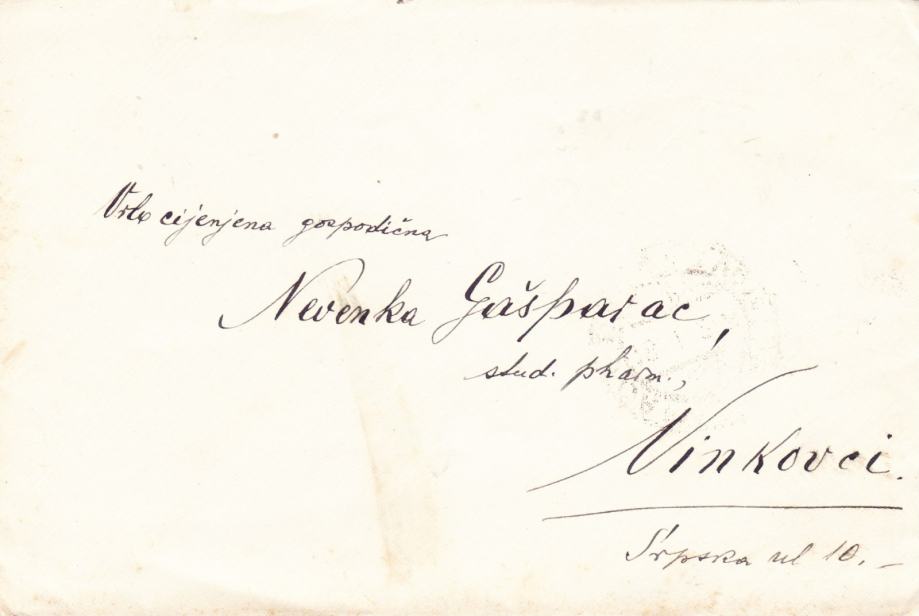 Vrlo cijenjena gospodična
Nevenka Gašparac,
stud. pharm.,
Vinkovci.
Srpska ul 10.-